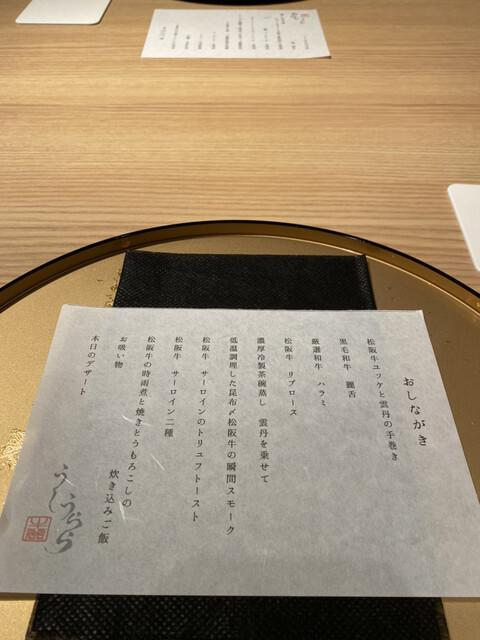 おしながき
松阪牛ユッケと雲丹の手巻き
黒毛和牛 麗舌
厳選和牛 ハラミ
松阪牛 リブロース
濃厚冷製茶碗蒸し 雲丹を乗せて
低温調理した昆布〆松阪牛の瞬間スモーク
松阪牛 サーロインのトリュフトースト
松阪牛 サーロイン二種
松阪牛の時雨煮と焼きとうもろこしの
炊き込みご飯
お吸い物
本日のデザート